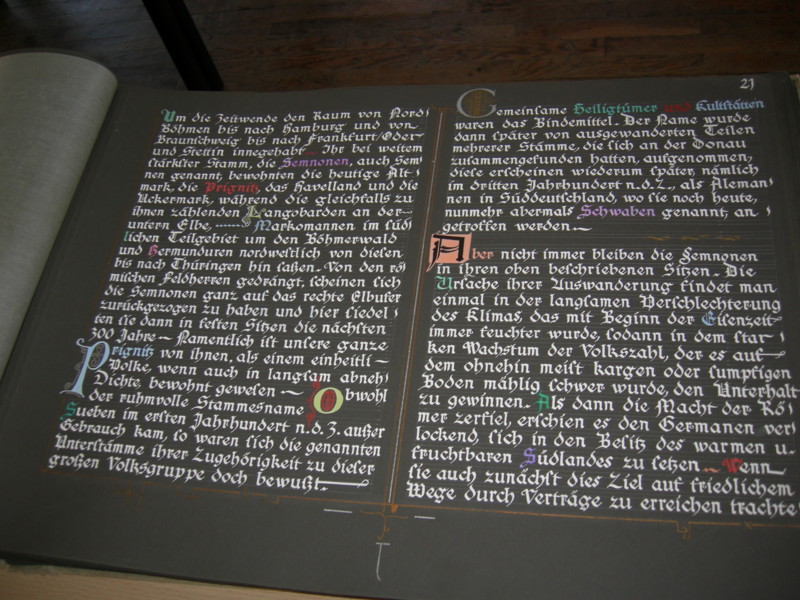 Um die Zeitwende den Raum von Nord
Böhmen bis nach Hamburg und von
Braunschweig bis nach Frankfurt/Oder
und Stettin innegehabt. Ihr bei weitem
stärkster Stamm, die Semnonen, auch Sem
nen genannt, bewohnten die heutige Alt
mark, die Prignitz, das Havelland und die
Uckermark, während die gleichfalls zu
ihnen zählenden Langobarden an der
untern Elbe, Markomannen im süd
lichen Teilgebiet um den Böhmerwald
und Hermunduren nordwestlich von diesen
bis nach Thüringen hin saßen. Von den rö
mischen Feldherren gedrängt, scheinen sich
die Semnonen ganz auf das rechte Elbufer
zurückgezogen zu haben und hier siedel
ten sie dann in festen Sitzen die nächsten
300 Jahre – Namentlich ist unsere ganze
Prignitz von ihnen, als einem einheitli –
Volke, wenn auch in langsam abneh
Dichte, bewohnt gewesen – Obwohl
der ruhmvolle Stammesname
Sueben im ersten Jahrhundert n.d.Z. außer
Gebrauch kam, so waren sich die genannten
Unterstämme ihrer Zugehörigkeit zu dieser
großen Volksgruppe doch bewußt.
21
Gemeinsame Heiligtümer und Kultstätten
waren das Bindemittel. Der Name wurde
dann später von ausgewanderten Teilen
mehrerer Stämme, die sich an der Donau
zusammengefunden hatten, aufgenommen,
diese erscheinen wiederum später, nämlich
im dritten Jahrhundert n.d.Z., als Aleman
nen in Süddeutschland, wo sie noch heute,
nunmehr abermals Schwaben genannt, an
getroffen werden.
Aber nicht immer bleiben die Semnonen
in ihren oben beschriebenen Sitzen. Die
Ursache ihrer Auswanderung findet man
einmal in der langsamen Verschlechterung
des Klimas, das mit Beginn der Eisenzeit
immer feuchter wurde, sodann in dem star
ken Wachstum der Volkszahl, der es auf
dem ohnehin meist kargen oder sumpfigen
Boden mählig schwer wurde, den Unterhalt
zu gewinnen. Als dann die Macht der Rö
mer zerfiel, erschien es den Germanen ver
lockend, sich in den Besitz des warmen u.
fruchtbaren Südlandes zu setzen. Wenn
sie auch zunächst dies Ziel auf friedlichem
Wege durch Verträge zu erreichen trachte